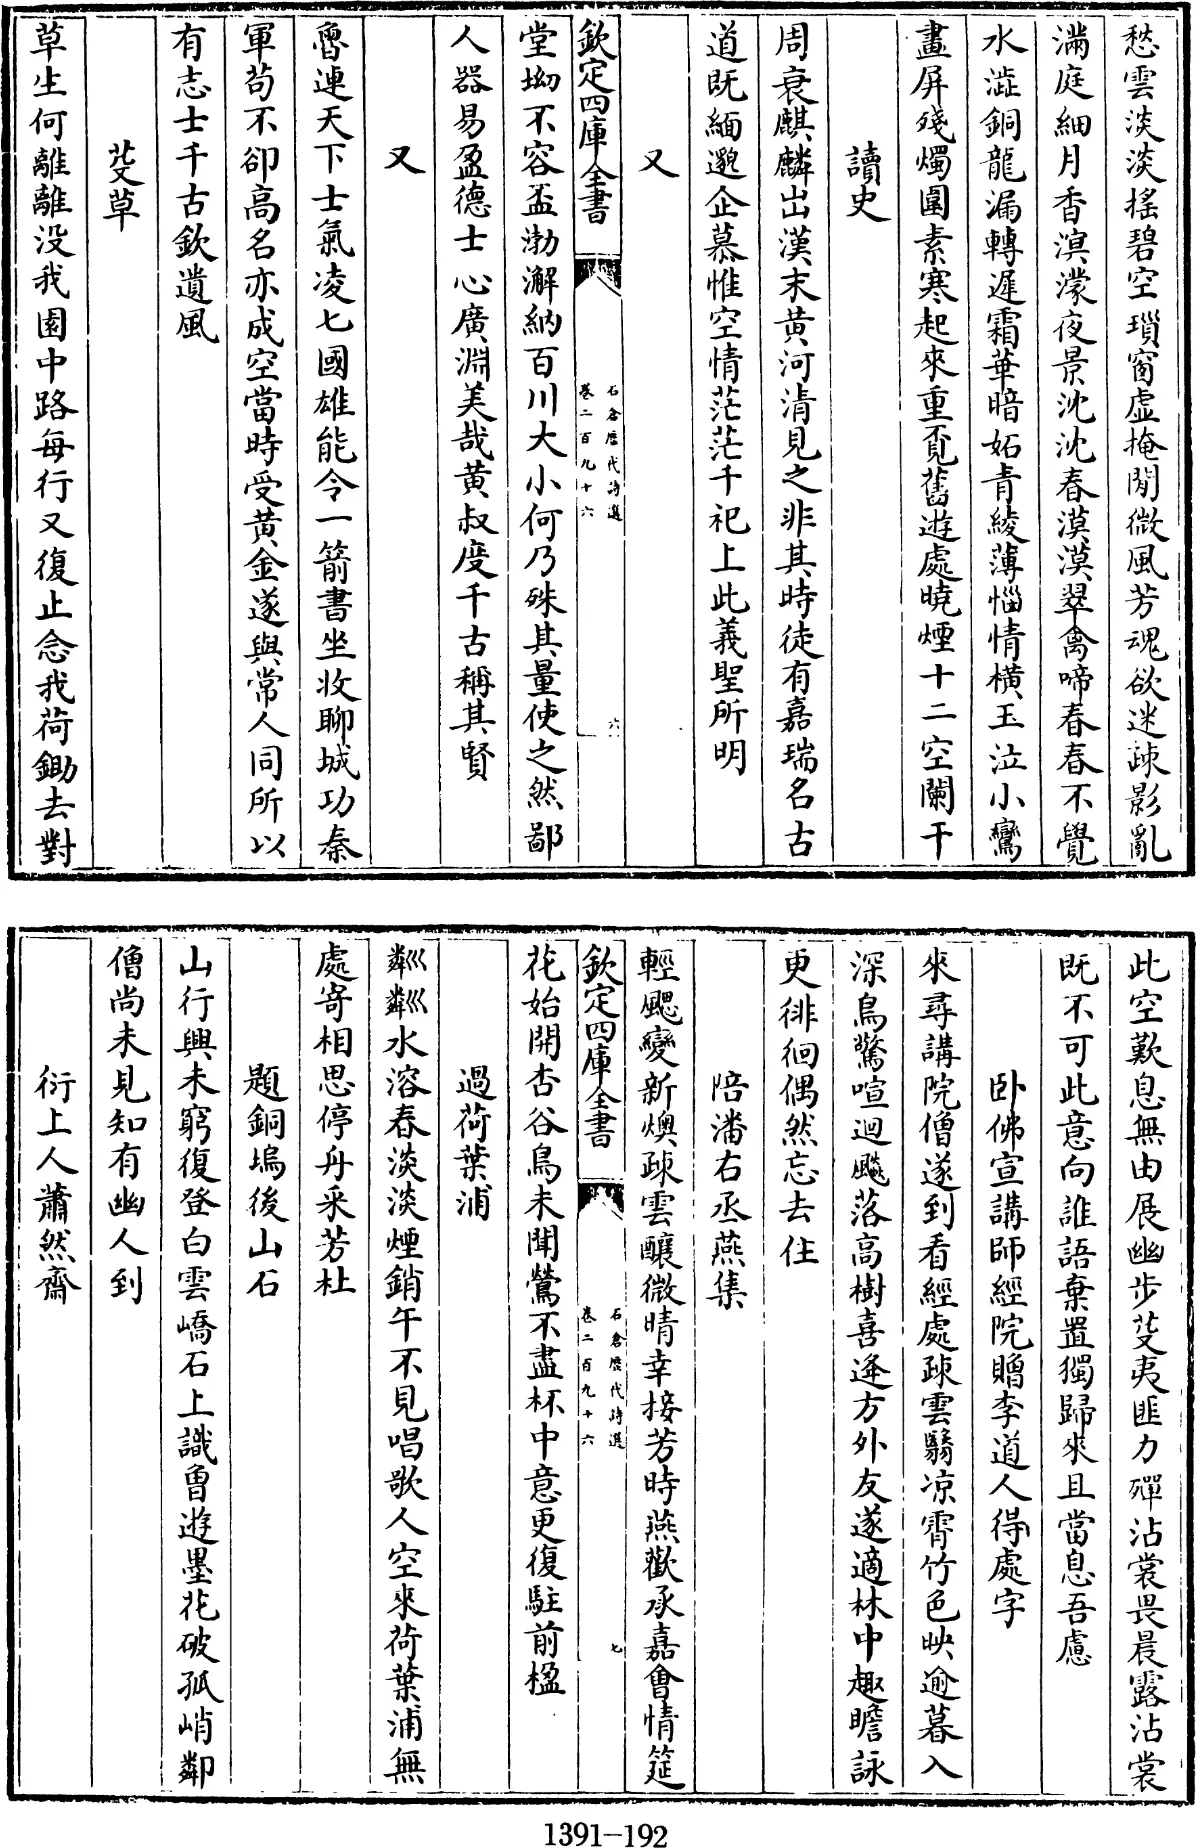 愁雲淡淡搖碧空瑣窗虛掩閒微風芳魂欲迷疎影亂
滿庭細月香溟濛夜景沈沈春漠漠翠禽啼春春不覺
水澁銅龍漏轉遲霜華暗妬青綾薄惱情橫玉泣小鸞
畫屏殘燭圍素寒起來重覔舊遊處曉煙十二空闌干
讀史
周衰麒麟出漢末黄河清見之非其時徒有嘉瑞名古
道既緬邈企慕惟空情茫茫千祀上此義聖所明
又
欽定四庫全書
石倉歷代詩選
卷二百九十六
六
堂坳不容盃渤澥納百川大小何乃殊其量使之然鄙
人器易盈德士心廣淵美哉黄叔度千古稱其賢
又
魯連天下士氣凌七國雄能令一箭書坐收聊城功秦
軍苟不卻高名亦成空當時受黄金遂與常人同所以
有志士千古欽遺風
芟草
草生何離離没我園中路每行又復止念我荷鋤去對
此空歎息無由展幽步芟夷匪力殫沾裳畏晨露沾裳
既不可此意向誰語棄置獨歸來且當息吾慮
卧佛宣講師經院贈李道人得處字
來尋講院僧遂到看經處疎雲翳凉霄竹色映逾暮入
深鳥驚喧迴飈落高樹喜逢方外友遂適林中趣瞻詠
更徘徊偶然忘去住
陪潘右丞燕集
輕颸變新燠疎雲釀微晴幸接芳時燕歡承嘉會情筵
欽定四庫全書
石倉歷代詩選
卷二百九十六
七
花始開杏谷鳥未聞鶯不盡杯中意更復駐前楹
過荷葉浦
粼粼水溶春淡淡煙銷午不見唱歌人空來荷葉浦無
處寄相思停舟采芳杜
題銅塢後山石
山行興未窮復登白雲嶠石上識曾遊墨花破孤峭鄰
僧尚未見知有幽人到
衍上人蕭然齋
1391-192